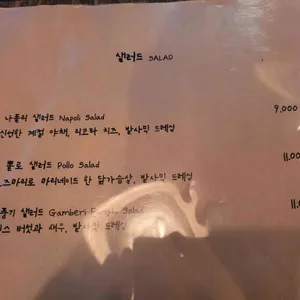 샐러드 SALAD
나폴리 샐러드 Napoli Salad 9,000
신선한 계절 야채, 리코타 치즈, 발사믹 드레싱
뽈로 샐러드 Pollo Salad 11,00
즈마리로 마리네이드 한 닭가슴살, 발사믹 드레싱
풍기 샐러드 Gamberi Salad 11,0
버섯과 새우, 발사믹 드레싱